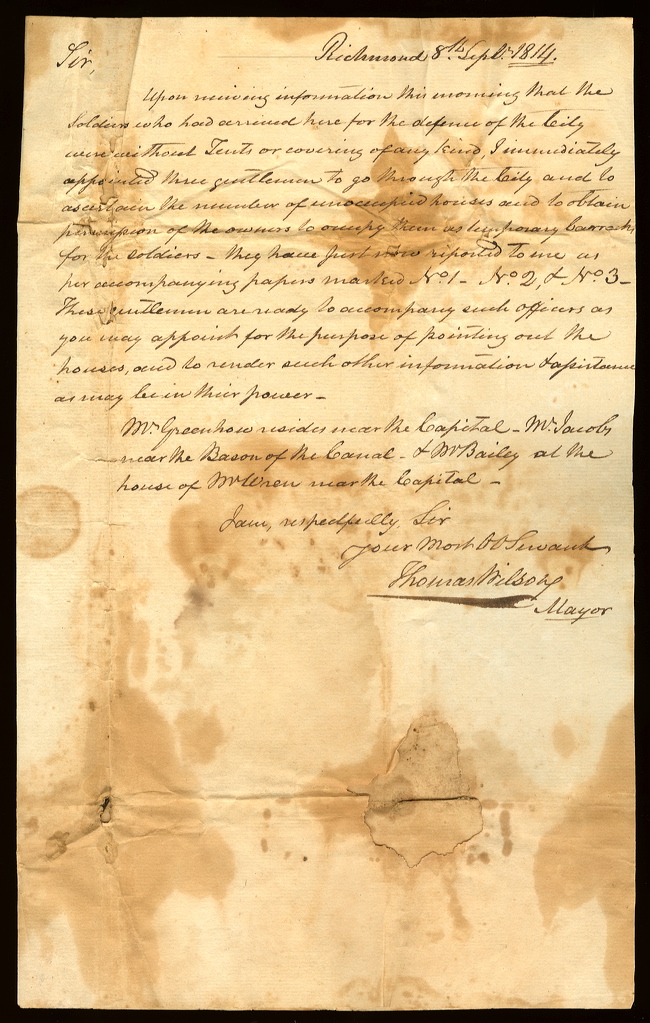 Sir,
Richmond 8th. Septr. 1814.
Upon receiving information this morning that the
Soldiers who had arrived here for the defence of the City
were without Tents or covering of any kind, I immediately
appointed three gentlemen to go through the City and to
ascertain the number of unoccupied houses and to obtain
permission of the owners to occupy them as temporary barracks
for the soldiers - they have just now reported to me as
per accompanying papers marked No. 1 - No. 2, & No. 3 -
These gentlemen are ready to accompany such officers as
you may appoint for the purpose of pointing out the
houses, and to render such other information & assistance
as may be in their power -
Mr. Greenhow resides near the Capital - Mr. Jacobs
near the Bason of the Canal - & Mr Bailey at the
house of Mr Wren near the Capital -
I am, respectfully, Sir
Your Most Ob Servant
Thomas Wilson
Mayor